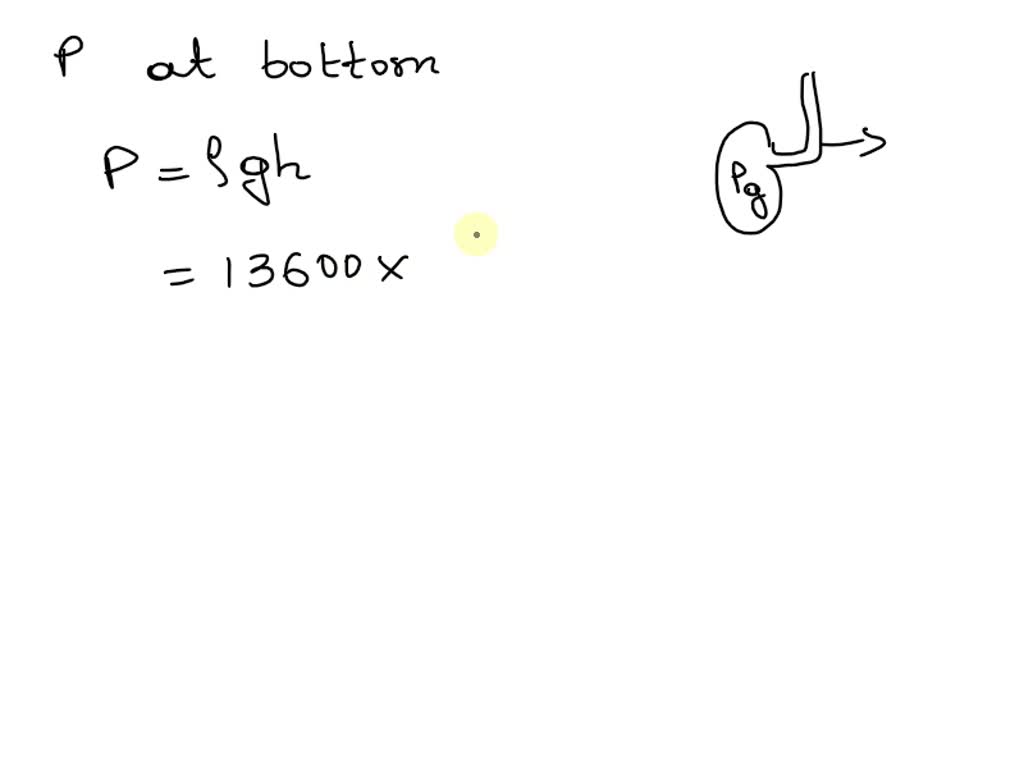 P at bottom
P = ρgh
= 13600 ×
Pg